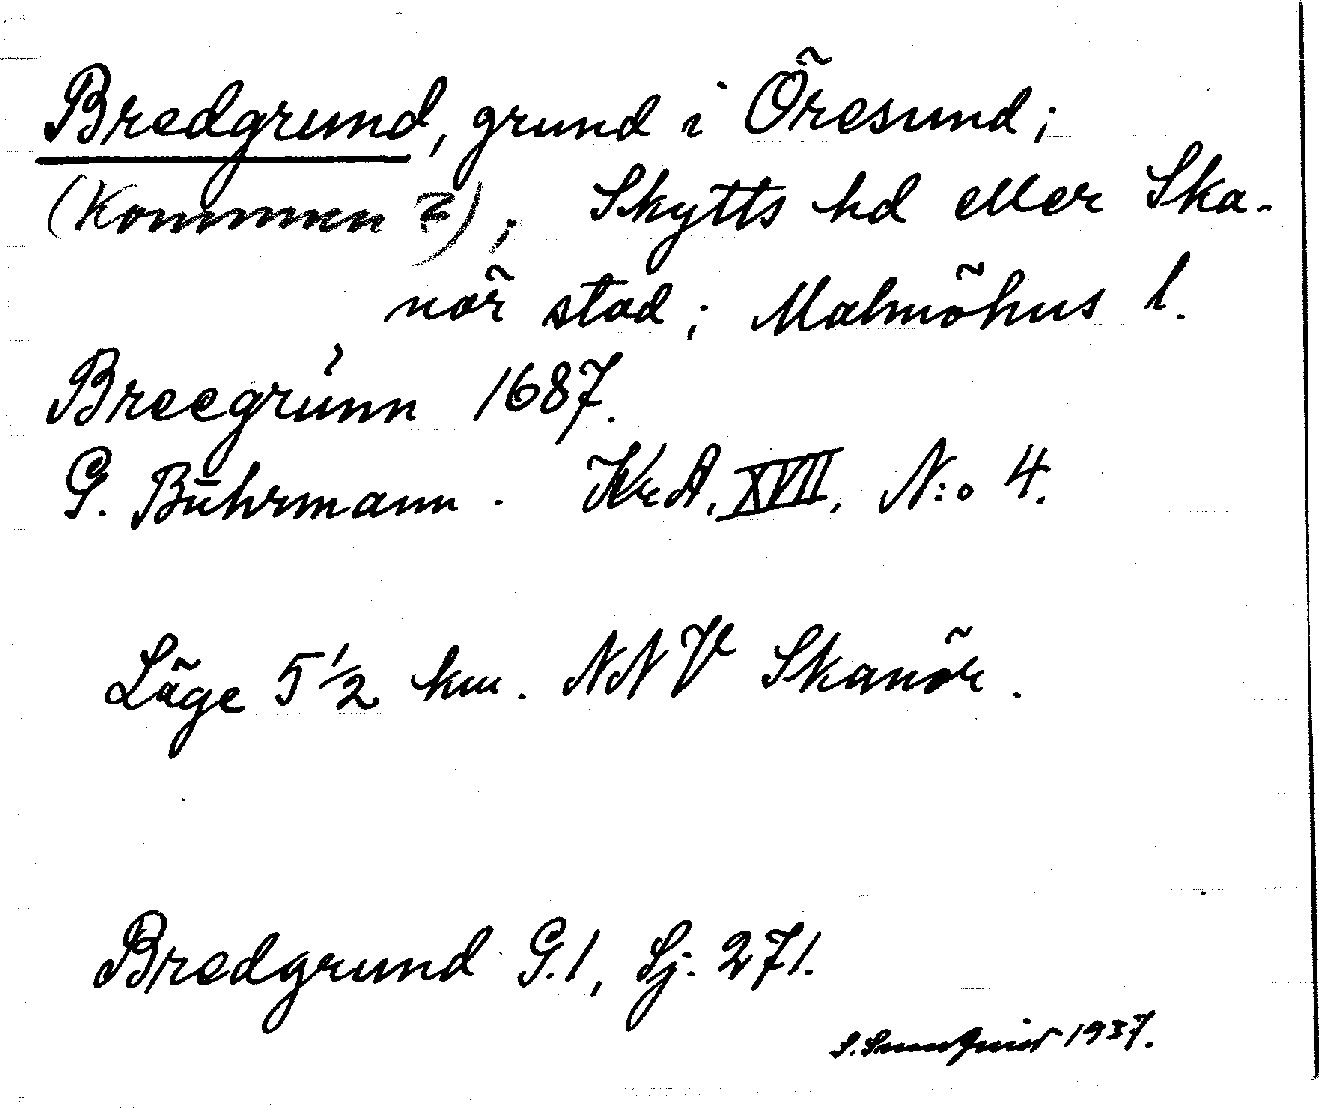 Bredgrund, grund i Öresund;
(Kommun?); Skytts hd eller Ska-
nör stad; Malmöhus l.
Breegrünn 1687.
G. Buhrmann. Kr.A. XVII, N:o 4.
Läge 5 1/2 km. NNV Skanör.
Bredgrund G.1, Sj. 271.
S. 1937.